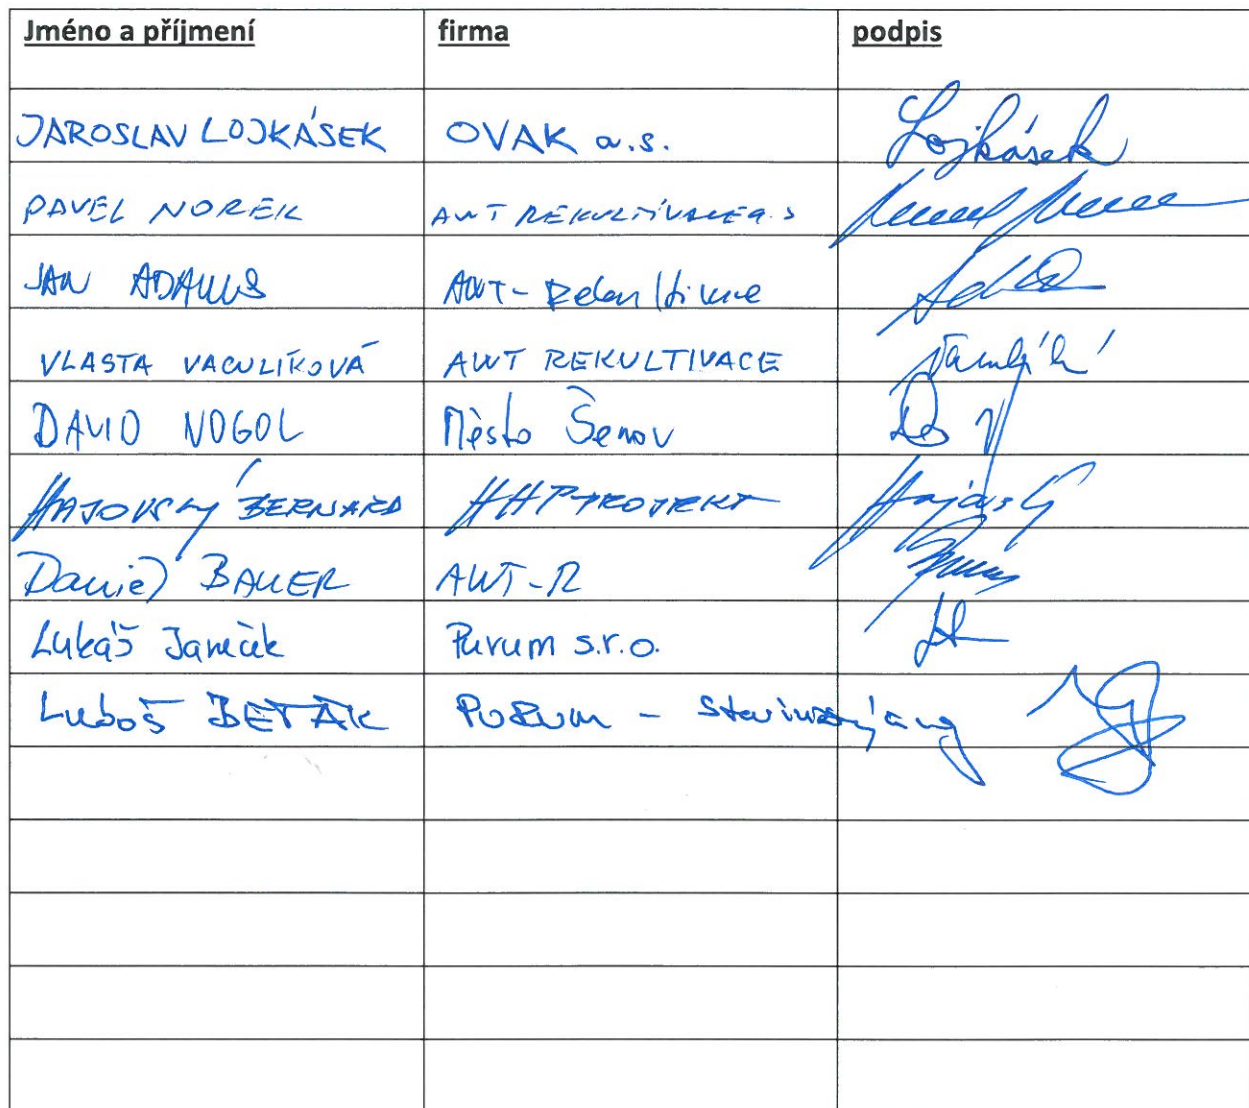 Jméno a příjmení firma podpis
JAROSLAV LOJKÁSEK OVAK a.s. Lojkásek
PAVEL NOREK AWT REKULTIVACE a.s
JAN ADAMUS AWT-
VLASTA VACULÍKOVÁ AWT REKULTIVACE
DAVID VOGOL Město Šenov
HAJOVSKÝ BERNARD HHPROJEKT
Daniel BAUER AWT-R
Lukáš Janečik Purum s.r.o.
Luboš BEŤÁK PURUM -